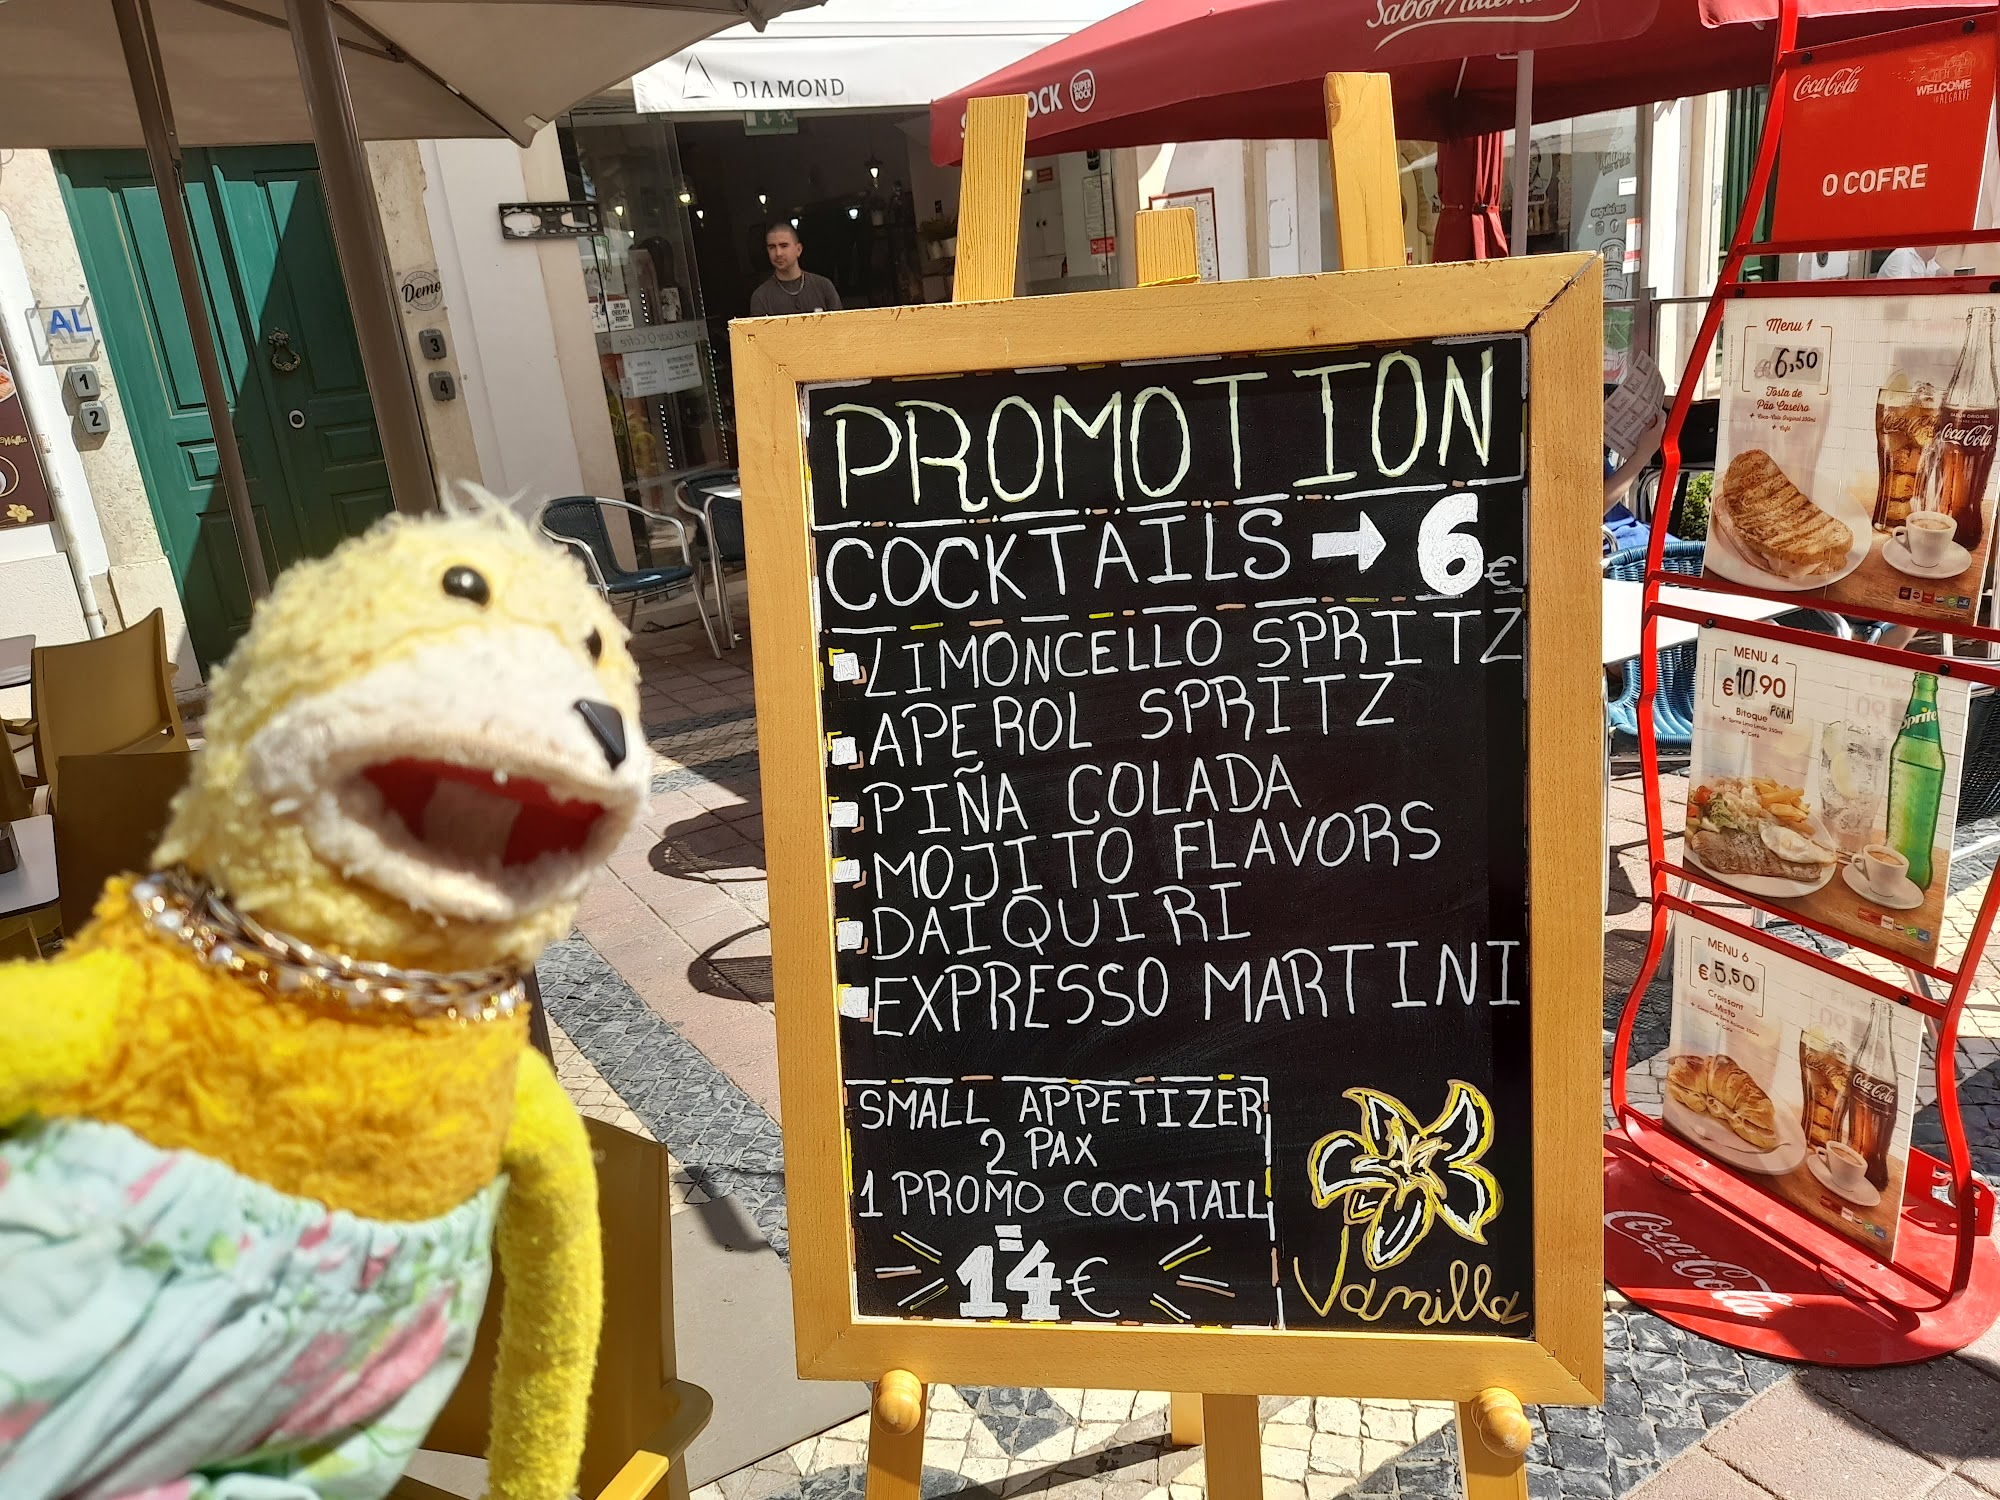 DIAMOND
Sabor
OCK
SUPER BOCK
Coca-Cola
WELCOME
ALGARVE
O COFRE
AL
1
2
Demo
3
4
Waffles
PROMOTION
COCKTAILS → 6€
LIMONCELLO SPRITZ
APEROL SPRITZ
PIÑA COLADA
MOJITO FLAVORS
DAIQUIRI
EXPRESSO MARTINI
SMALL APPETIZER
2 PAX
1 PROMO COCKTAIL
=
14€
Vanilla
Menu 1
6,50
Tosta de
Pão Caseiro
+ Café
Coca-Cola
MENU 4
€10.90
PORK
Bitoque
+ Café
Sprite
MENU 6
€5,50
Croissant
Misto
+ Café
Coca-Cola
Coca-Cola